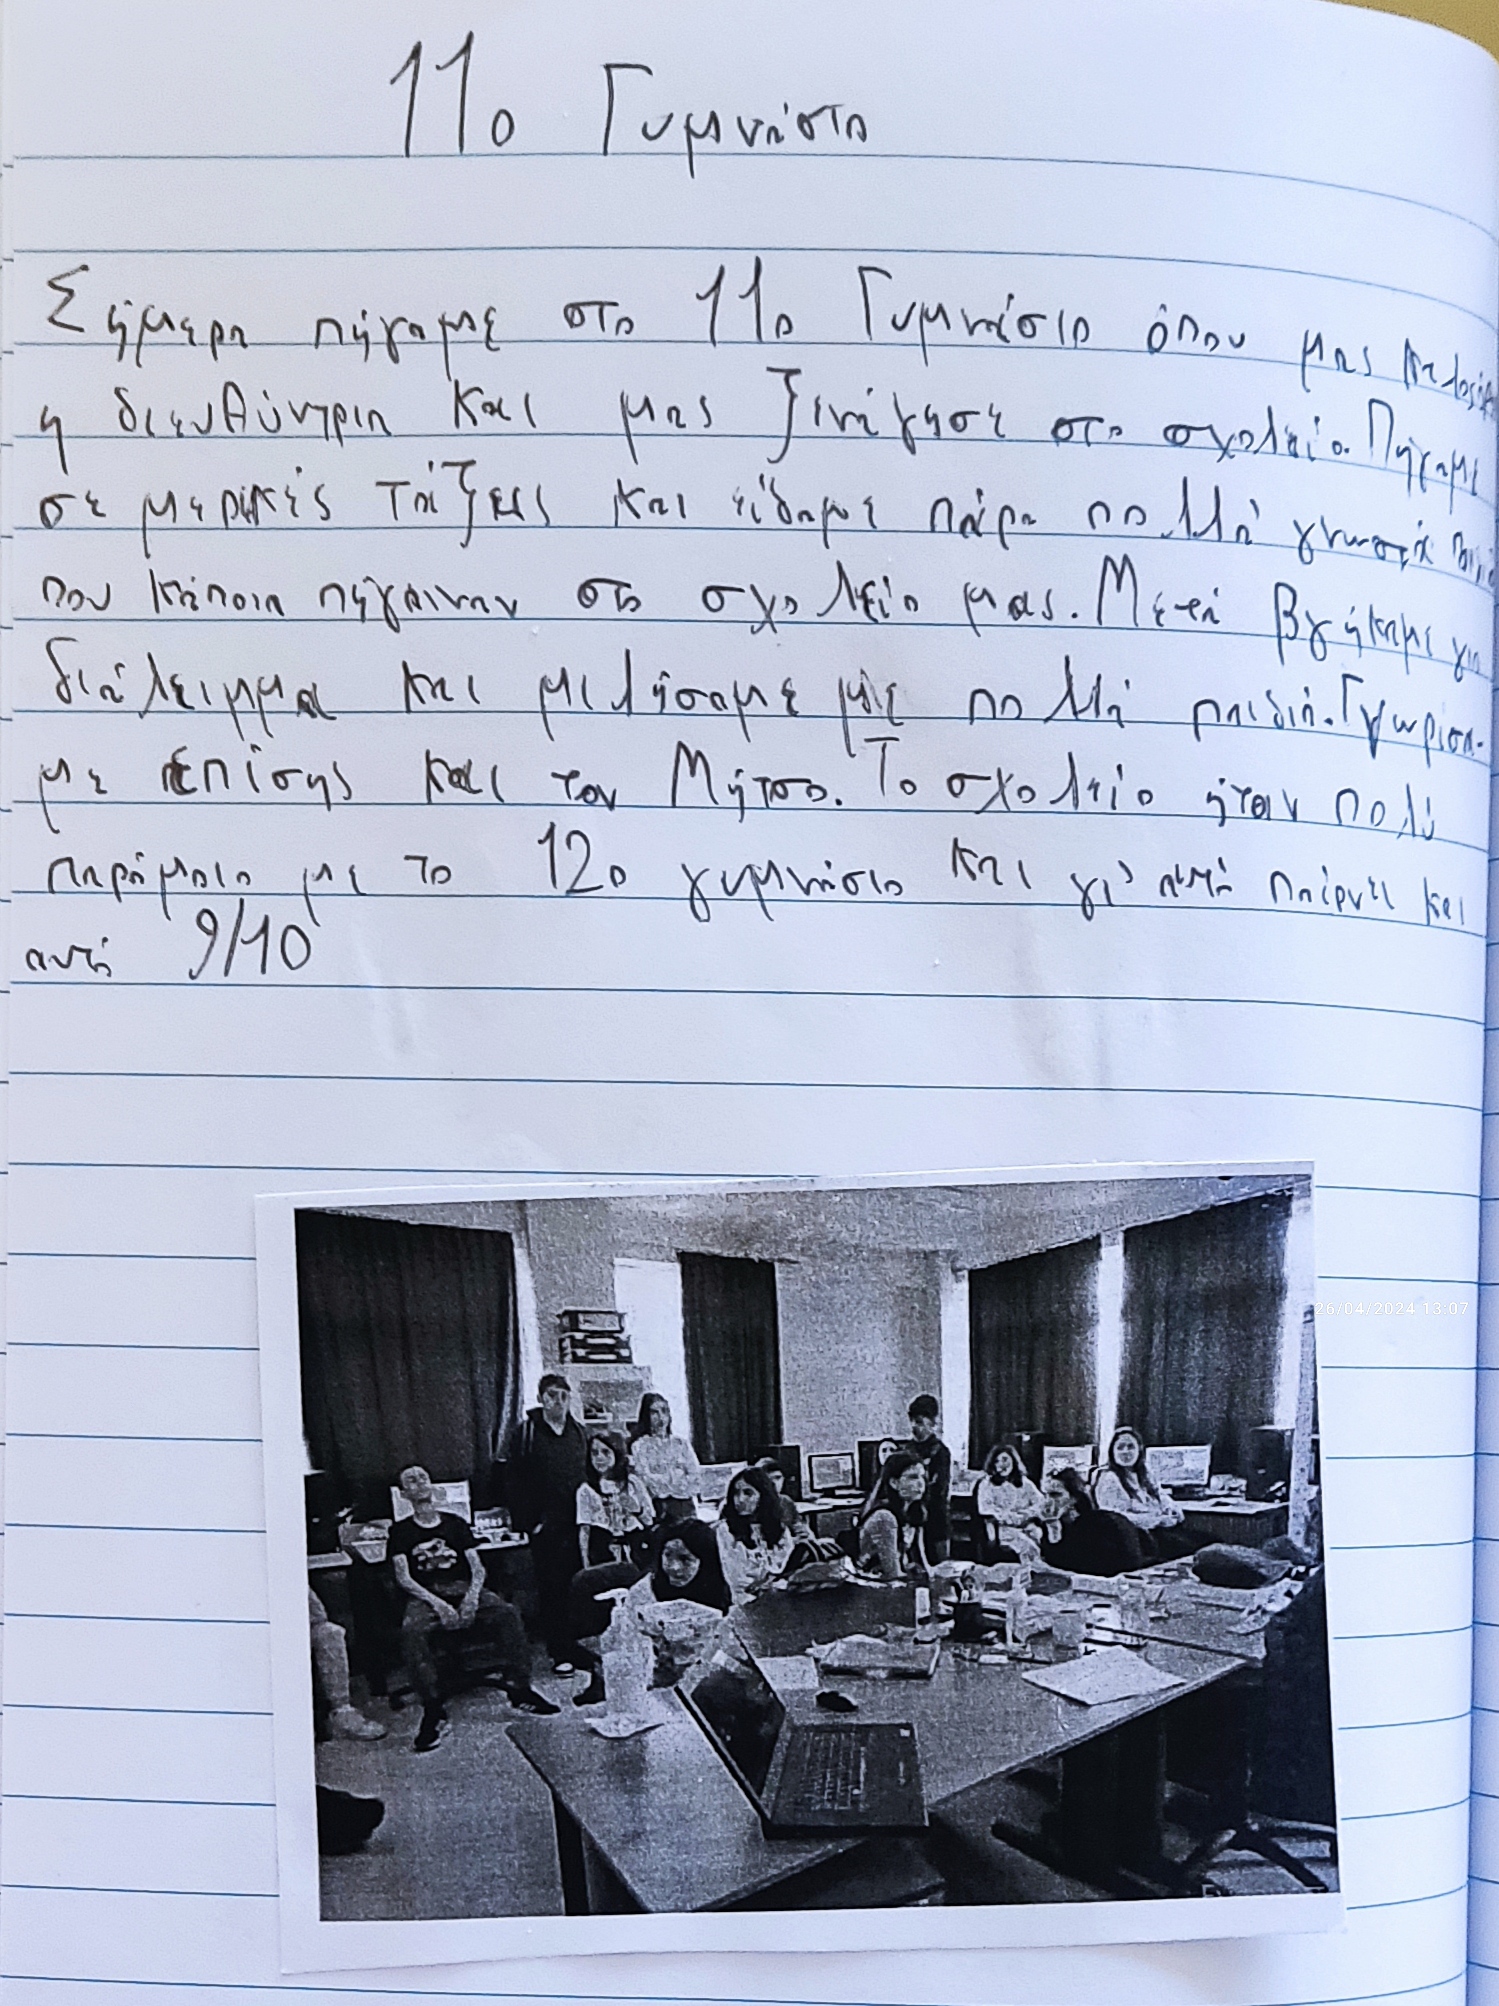 11ο Γυμνάσιο
Σήμερα πήγαμε στο 11ο Γυμνάσιο όπου μας
η διευθύντρια και μας ξενάγησε στο σχολείο. Πήγαμε
σε μερικές τάξεις και είδαμε πάρα πολλά γνωστά
που κάποια πήγαιναν στο σχολείο μας. Μετά βγήκαμε για
διάλειμμα και μιλήσαμε με πολλά παιδιά. Γνωρίσα-
με επίσης και τον Μήτσο. Το σχολείο ήταν πολύ
παρόμοιο με το 12ο γυμνάσιο και γι' αυτό παίρνει και
αυτό 9/10
26/04/2024 13:07